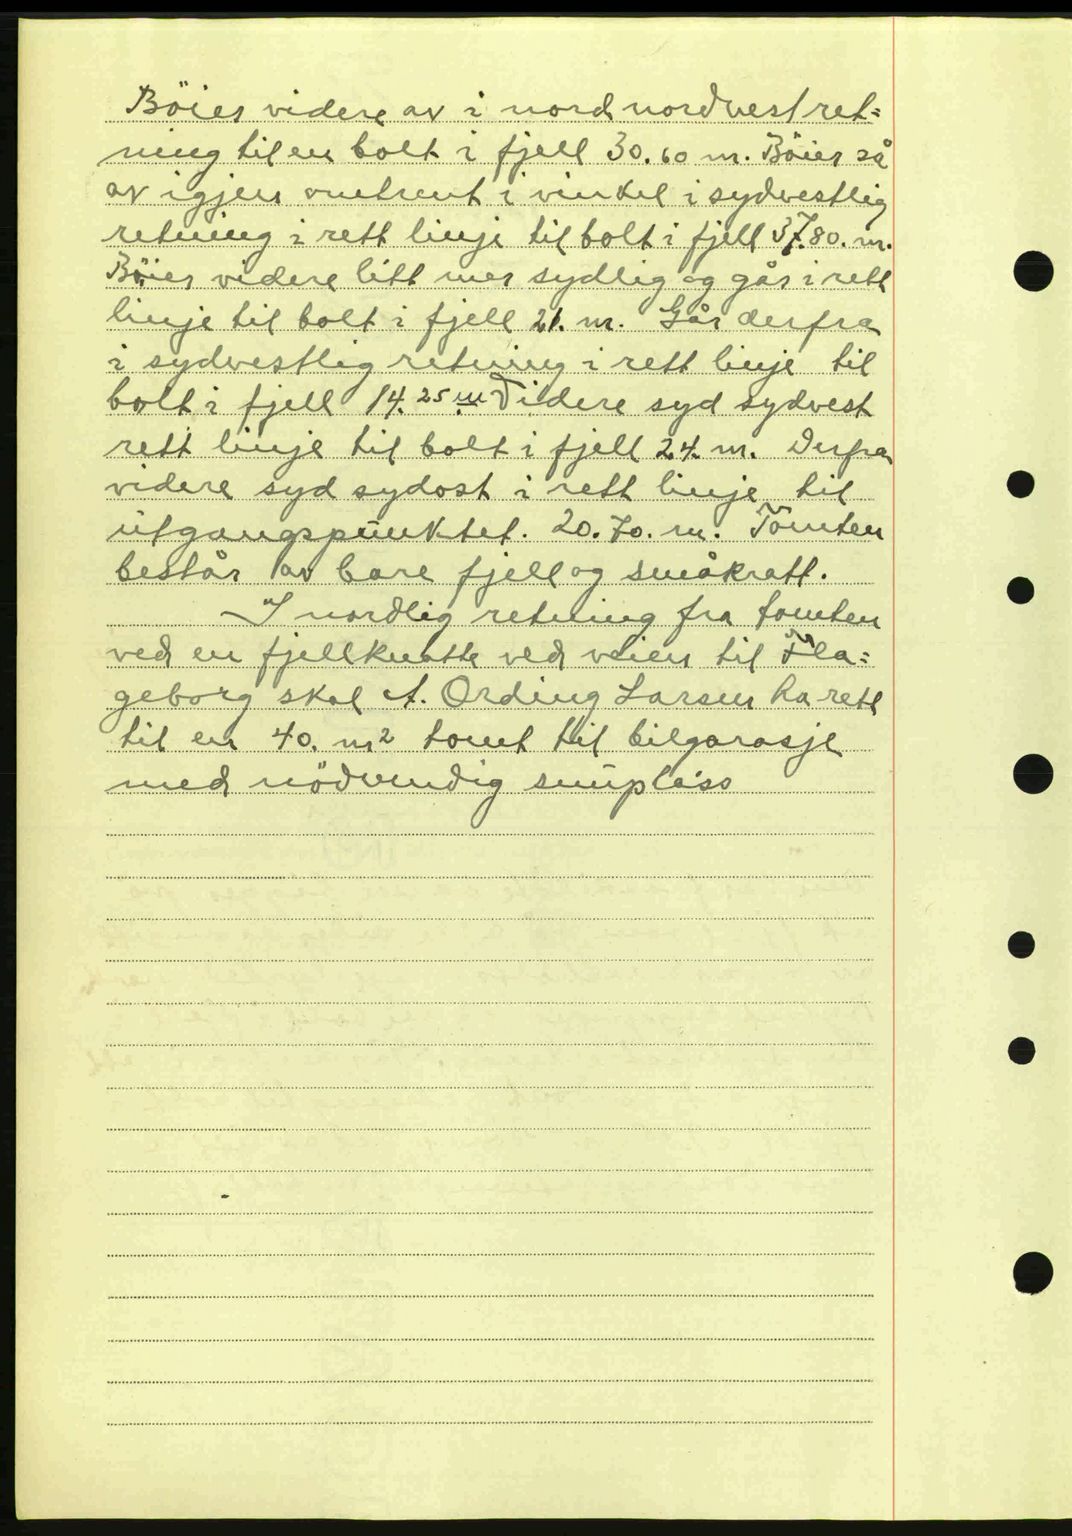 Böies videre av i nord nordvest ret=
ning til en bolt i fjell 30.60 m. Böies så
av igjen omtrent i vinkel i sydvestlig
retning i rett linje til bolt i fjell 37.80. m.
Böies videre litt mer sydlig og går i rett
linje til bolt i fjell 21. m. Går derfra
i sydvestlig retning i rett linje til
bolt i fjell 14.25 m Videre syd sydvest
rett linje til bolt i fjell 24. m. Derfra
videre syd sydost i rett linje til
utgangspunktet. 20.70. m. Tomten
består av bare fjell og småkratt.
I nordlig retning fra tomten
ved en fjellknatte ved veien til Fla=
geborg skal A. Ording Larsen ha rett
til en 40. m2 tomt til bilgarasje
med nödvendig snuplass